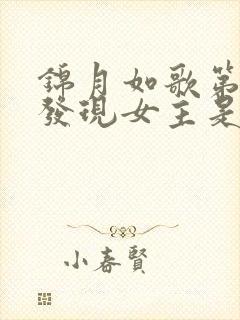 錦月如歌第
發現女主是
小春賢